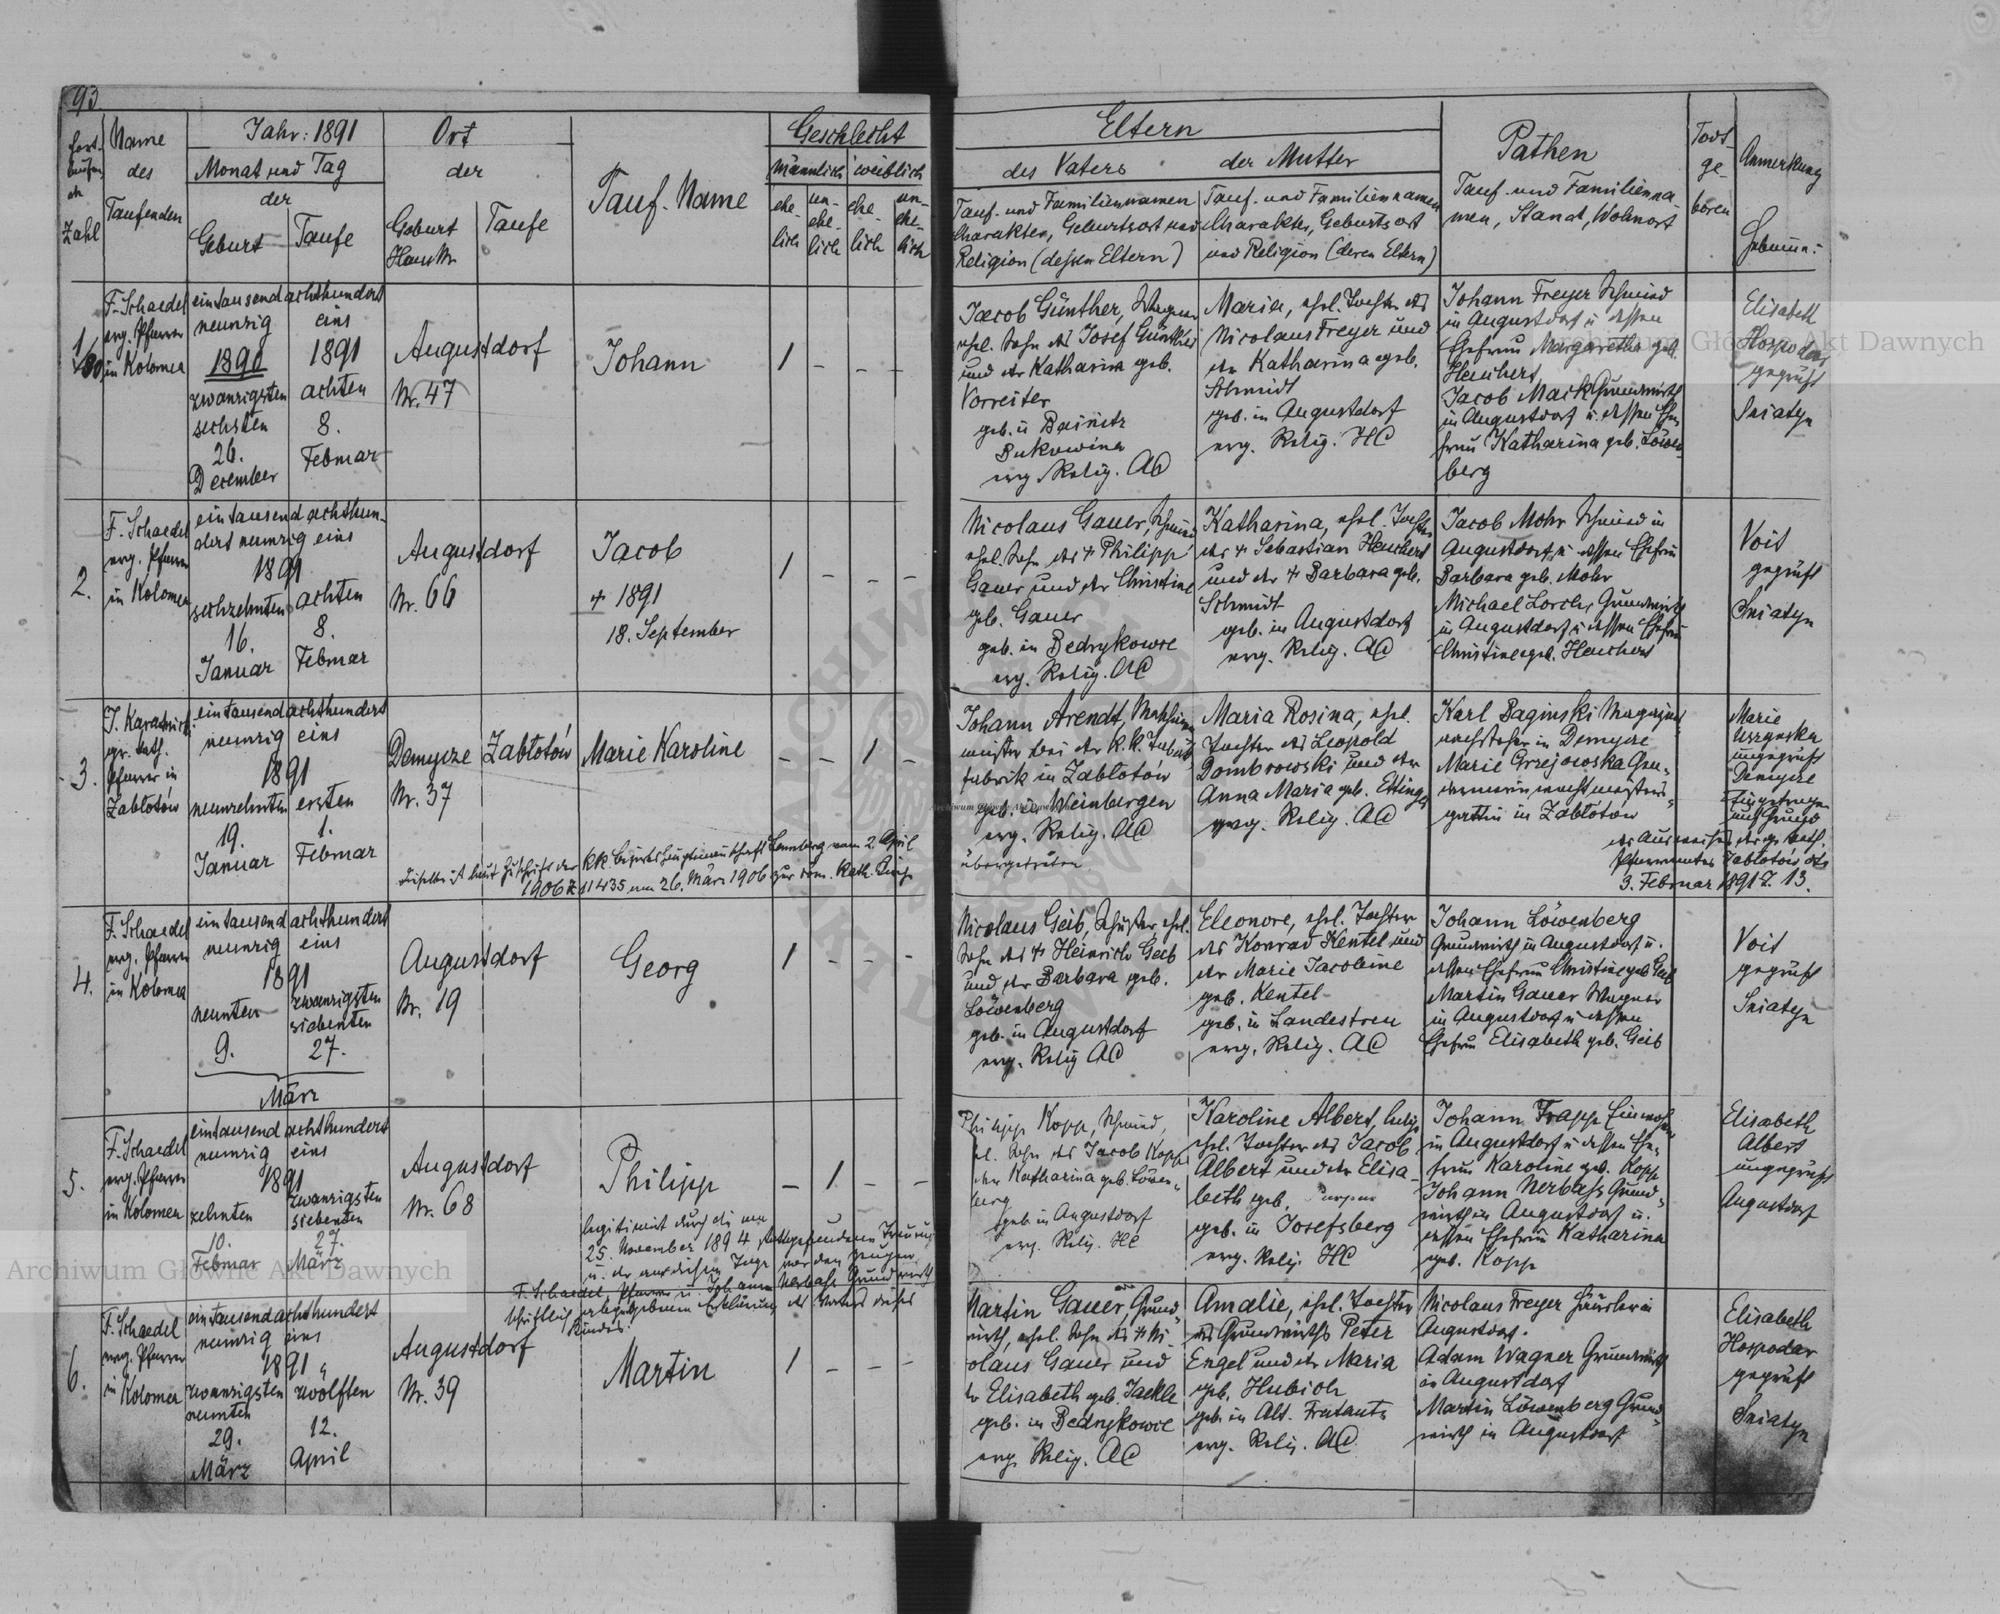 93.
fort-
laufen
de
Zahl
Name
des
Taufenden
Jahr: 1891
Monat und Tag
der
Geburt
Taufe
Ort
der
Geburt
Haus Nr
Taufe
Tauf-Name
Geschlecht
männlich
weiblich
ehe-
lich
un-
ehe-
lich
ehe-
lich
un-
ehe-
lich
Eltern
des Vaters
der Mutter
Tauf- und Familiennamen
Charakter, Geburtsort und
Religion (dessen Eltern)
Tauf- und Familiennamen
Charakter, Geburtsort
und Religion (deren Eltern)
Pathen
Tauf- und Familienna-
men, Stand, Wohnort
Todt-
ge-
boren
Anmerkung
F. Schaedel
evg. Pfarrer
in Kolomea
eintausend achthundert
neunzig eins
1890
zwanzigsten
sechsten
26.
December
1891
achten
8.
Februar
Augustdorf
Nr. 47
Johann
1 - - -
Jacob Günther, Wagner
ehel. Sohn des Josef Günther
und der Katharina geb.
Vorreiter
geb. in
Bukowina
evg. Relig. AC
Maria, ehel. Tochter des
Nicolaus Freyer und
der Katharina geb.
Schmidt
geb. in Augustdorf
evg. Relig. HC
Johann Freyer Schmied
in Augustdorf u. dessen
Ehefrau Margaretha geb.
Heuchert
Jacob Mack Grundwirth
in Augustdorf u. dessen Ehe-
frau Katharina geb. Löwen-
berg
Elisabeth
Hospodar
geprüft
Sniatyn
2.
F. Schaedel
evg. Pfarrer
in Kolomea
eintausend achthun-
dert neunzig eins
1891
sechzehnten
16.
Januar
achten
8.
Februar
Augustdorf
Nr. 66
Jacob
+ 1891
18. September
1 - - -
Nicolaus Gauer, Schmied
ehel. Sohn des + Philipp
Gauer und der Christine
geb. Gauer
geb. in Bedrykowce
evg. Relig. AC
Katharina, ehel. Tochter
des + Sebastian Heuchert
und der + Barbara geb.
Schmidt
geb. in Augustdorf
evg. Relig. AC
Jacob Mohr Schmied in
Augustdorf u. dessen Ehefrau
Barbara geb. Mohr
Michael Lorch, Grundwirth
in Augustdorf u. dessen Ehefrau
Christine geb. Heuchert
Voit
geprüft
Sniatyn
3.
gr. kath.
Pfarrer in
Zabłotów
eintausend achthundert
neunzig eins
1891
neunzehnten
19.
Januar
ersten
1.
Februar
Demycze
Nr. 37
Zabłotów
Marie Karoline
- - 1 -
Dieselbe ist laut Zuschrift der KK Bezirkshauptmannschaft Lemberg vom 2 April
1906 Z 11435 am 26. März 1906 zur röm. kath. Kirche
übergetreten
Johann Arendt,
meister bei der K.K. Tabak
fabrik in Zabłotów
geb. in Weinbergen
evg. Relig. AC
Maria Rosina, ehel.
Tochter des Leopold
Dombrowski und der
Anna Maria geb. Ettinger
evg. Relig. AC
Karl Baginski
in Demycze
Marie Grzejowska Gen-
darmeriewachtmeisters-
gattin in Zabłotów
Marie
ungeprüft
Demycze
Eingetragen
auf Grund
des Ausweises des gr. kath.
Pfarramtes Zabłotów dto
3. Februar 1891 Z. 13.
4.
F. Schaedel
evg. Pfarrer
in Kolomea
eintausend achthundert
neunzig eins
1891
neunten
9.
zwanzigsten
siebenten
27.
März
Augustdorf
Nr. 19
Georg
1 - - -
Nicolaus Geib, Schuster, ehel.
Sohn des + Heinrich Geib
und der Barbara geb.
Löwenberg
geb. in Augustdorf
evg. Relig AC
Eleonore, ehel. Tochter
des Konrad Kentel und
der Marie Jacobine
geb. Kentel
geb. in Landestreu
evg. Relig. AC
Johann Löwenberg
Grundwirth in Augustdorf u.
dessen Ehefrau Christine geb. Geib
Martin Gauer Wagner
in Augustdorf u dessen
Ehefrau Elisabeth geb. Geib
Voit
geprüft
Sniatyn
5.
F. Schaedel
evg. Pfarrer
in Kolomea
eintausend achthundert
neunzig eins
1891
zehnten
10.
Februar
zwanzigsten
siebenten
27.
März
Augustdorf
Nr. 68
Philipp
- 1 - -
legitimirt durch die am
25. November 1894 stattgefundene Trauung
u. der an diesem Tage vor den Zeugen
F. Schaedel, Pfarrer u. Johann Nerbass Grundwirth
schriftlich abgegebenen Erklärung des Vaters dieses
Kindes.
Philipp Kopp, Schmied,
ehel. Sohn des Jacob Kopp
der Katharina geb. Löwen-
berg
geb. in Augustdorf
evg. Relig. HC
Karoline Albert, ledig
ehel. Tochter des Jacob
Albert und der Elisa-
beth geb.
geb. in Josefsberg
evg. Relig. HC
Johann Trapp
in Augustdorf u dessen Ehe-
frau Karoline geb. Kopp
Johann Nerbass Grund-
wirth in Augustdorf u.
dessen Ehefrau Katharina
geb. Kopp
Elisabeth
Albert
ungeprüft
Augustdorf
6.
F. Schaedel
evg. Pfarrer
in Kolomea
eintausend achthundert
neunzig eins
1891
zwanzigsten
neunten
29.
März
zwölften
12.
April
Augustdorf
Nr. 39
Martin
1 - - -
Martin Gauer, Grund-
wirth, ehel. Sohn des + Ni
olaus Gauer und
Elisabeth geb. Jaekle
geb. in Bedrykowce
evg. Relig. AC
Amalie, ehel. Tochter
des Grundwirths Peter
Engel und der Maria
geb. Hubich
geb. in Alt-Fratautz
evg. Relig. AC
Nicolaus Freyer Häusler in
Augustdorf.
Adam Wagner Grundwirth
in Augustdorf
Martin Löwenberg Grund-
wirth in Augustdorf
Elisabeth
Hospodar
geprüft
Sniatyn
Archiwum Główne Akt Dawnych
Archiwum Główne Akt Dawnych
Archiwum Główne Akt Dawnych